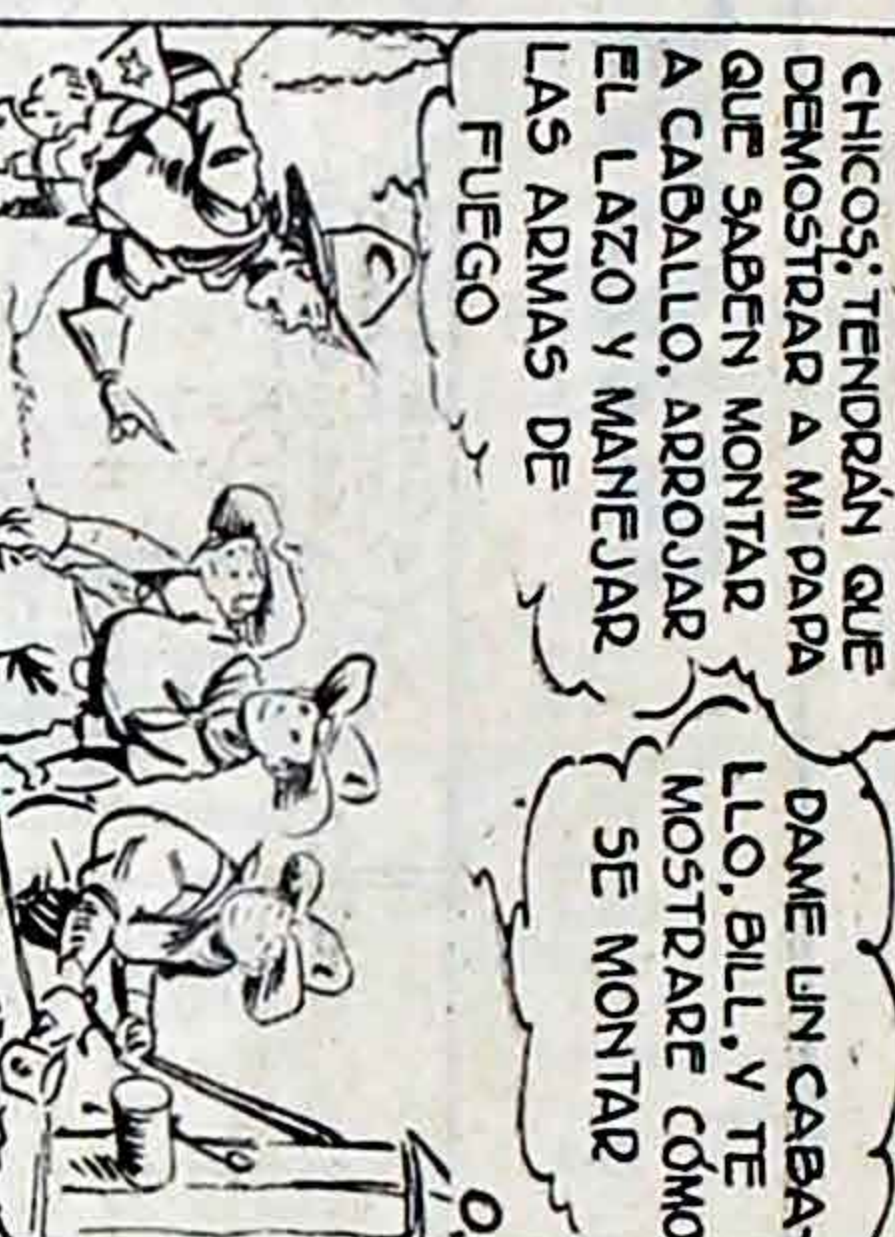 CHICOS; TENDRÁN QUE
DEMOSTRAR A MI PAPA
QUE SABEN MONTAR
A CABALLO, ARROJAR
EL LAZO Y MANEJAR
LAS ARMAS DE
FUEGO
DAME UN CABA-
LLO, BILL, Y TE
MOSTRARE CÓMO
SE MONTAR